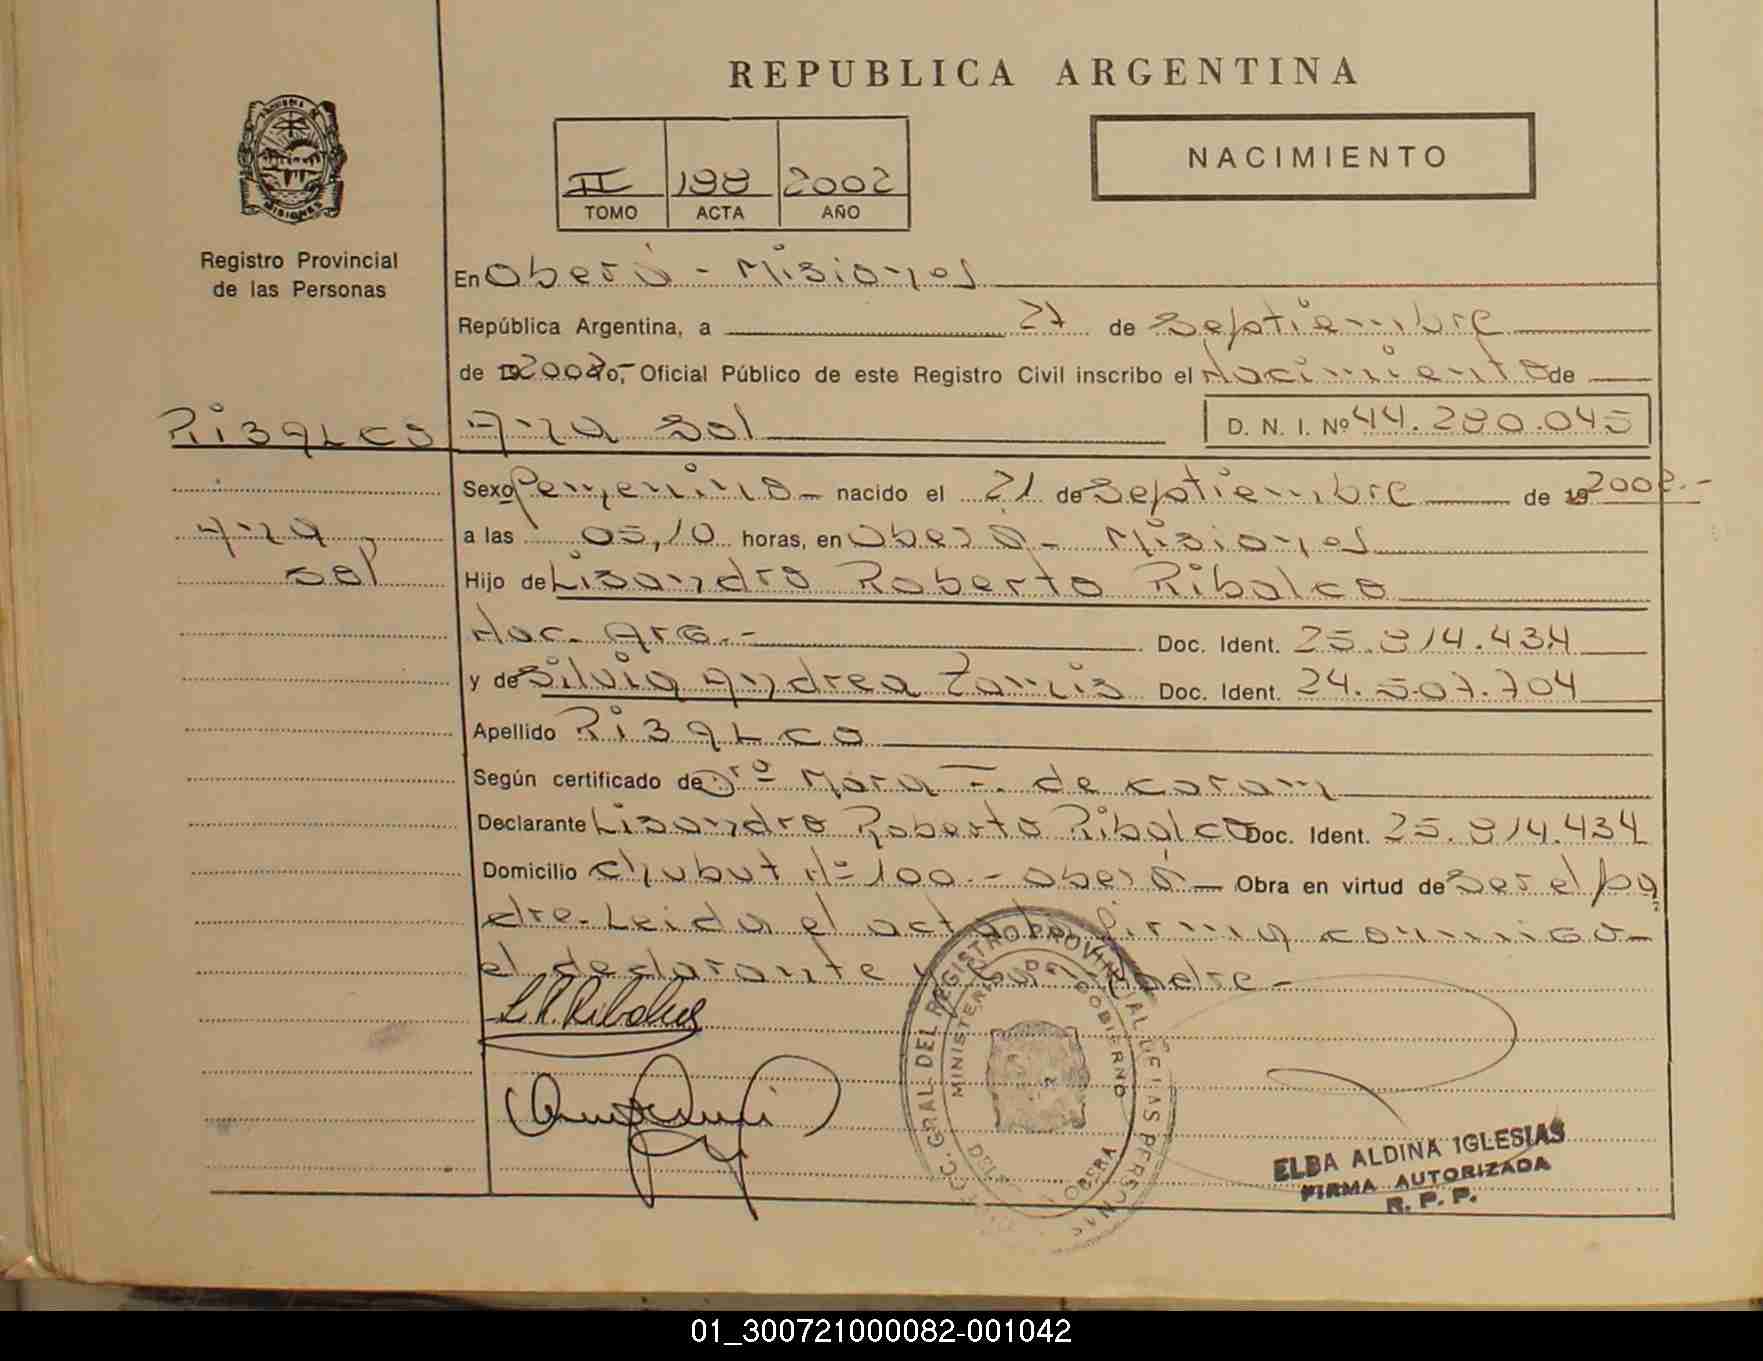 REPUBLICA ARGENTINA
NACIMIENTO
II 198 2002
TOMO ACTA AÑO
MISIONES
Registro Provincial
de las Personas
En Oberá - Misiones
República Argentina, a 27 de Septiembre
de 2002 yo, Oficial Público de este Registro Civil inscribo el Nacimiento de
RIBALCO Ana Sol D. N. I. Nº 44.280.045
Sexo Femenino - nacido el 21 de Septiembre de 19 2002.-
Ana
Sol
a las 05,10 horas, en Oberá - Misiones
Hijo de Lisandro Roberto Ribalco
Nac. Arg.- Doc. Ident. 25.814.434
y de Silvia Andrea Doc. Ident. 24.507.704
Apellido RIBALCO
Según certificado de Drª Mara F. de
Declarante Lisandro Roberto Ribalco Doc. Ident. 25.814.434
Domicilio Chubut Nº 100.- Oberá - Obra en virtud de ser el pa
dre.- Leida el acta la firma conmigo
el declarante y la madre.-
L. R. Ribalco
GRAL. DEL REGISTRO PROVINCIAL DE LAS PERSONAS
MINISTERIO DE GOBIERNO
OBERA
ELBA ALDINA IGLESIAS
FIRMA AUTORIZADA
R. P. P.
01_300721000082-001042